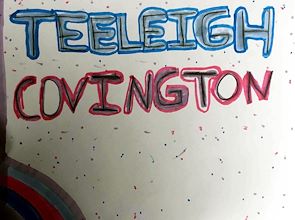 TEELEIGH
COVINGTON